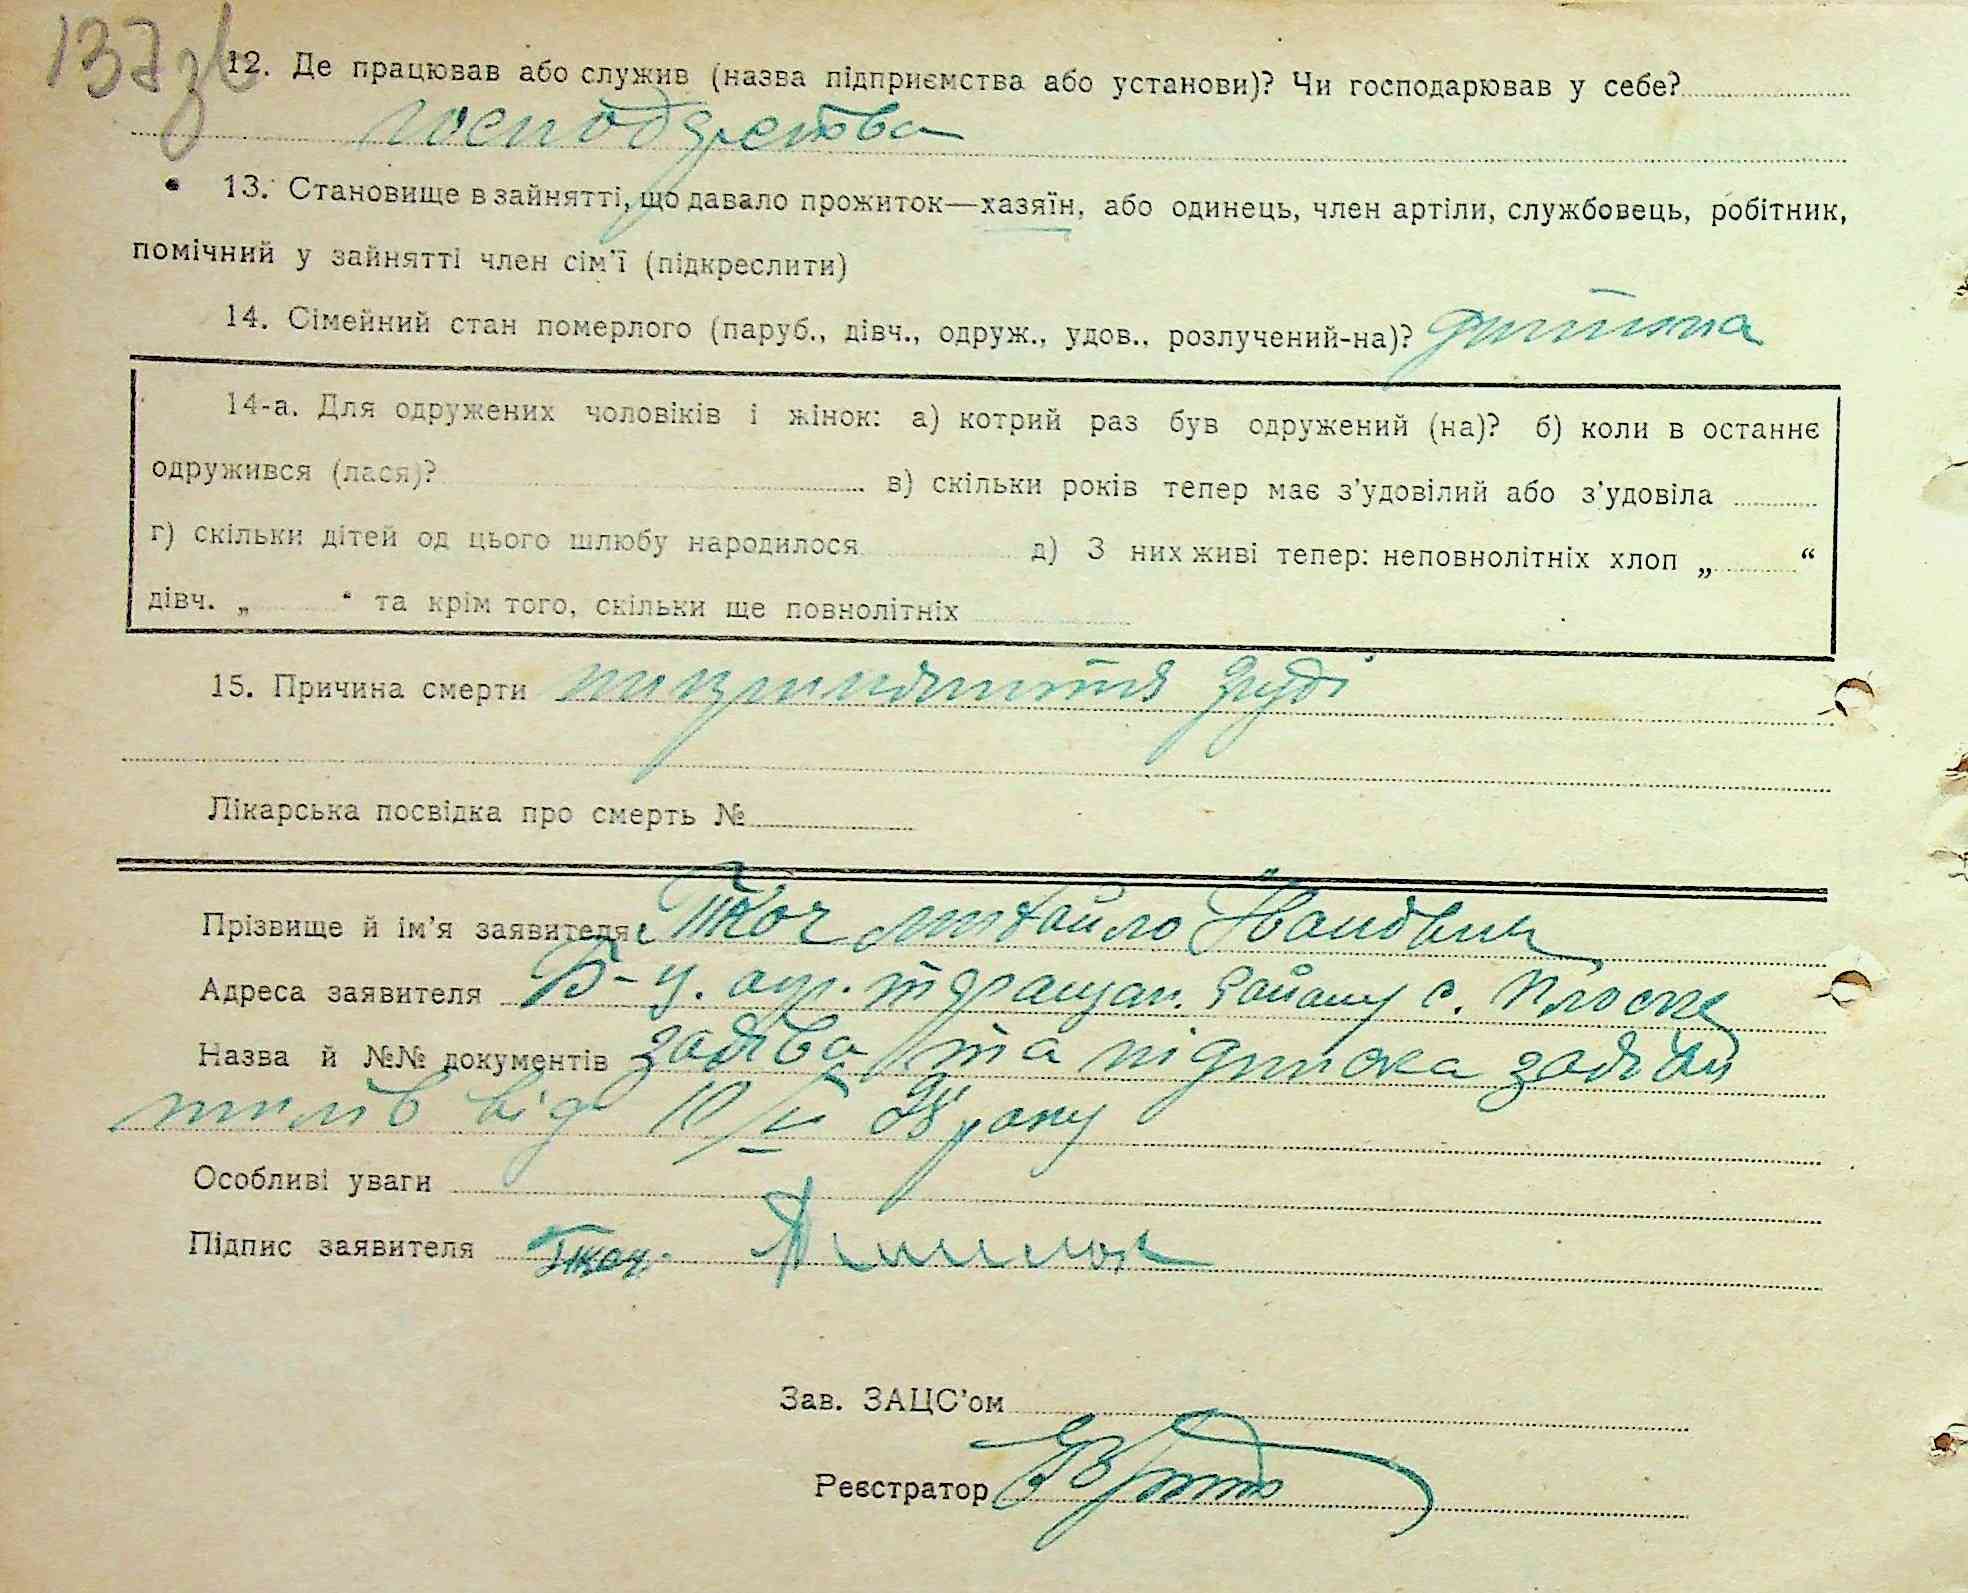 137зв
12. Де працював або служив (назва підприємства або установи)? Чи господарював у себе?
господарства
13. Становище в зайнятті, що давало прожиток—хазяїн, або одинець, член артіли, службовець, робітник,
помічний у зайнятті член сім'ї (підкреслити)
14. Сімейний стан померлого (паруб., дівч., одруж., удов., розлучений-на)? дитина
14-а. Для одружених чоловіків і жінок: а) котрий раз був одружений (на)? б) коли в останнє
одружився (лася)? в) скільки років тепер має з'удовілий або з'удовіла
г) скільки дітей од цього шлюбу народилося д) З них живі тепер: неповнолітніх хлоп „ “
дівч. „ “ та крім того, скільки ще повнолітніх
15. Причина смерти груді
Лікарська посвідка про смерть №
Прізвище й ім'я заявителя Ткач Михайло Йванович
Адреса заявителя Б-Ц. окр. району с. Плоске
Назва й №№ документів заява та підписка заяви
телів від 10/ 28 року
Особливі уваги
Підпис заявителя Ткач
Зав. ЗАЦС'ом
Реєстратор